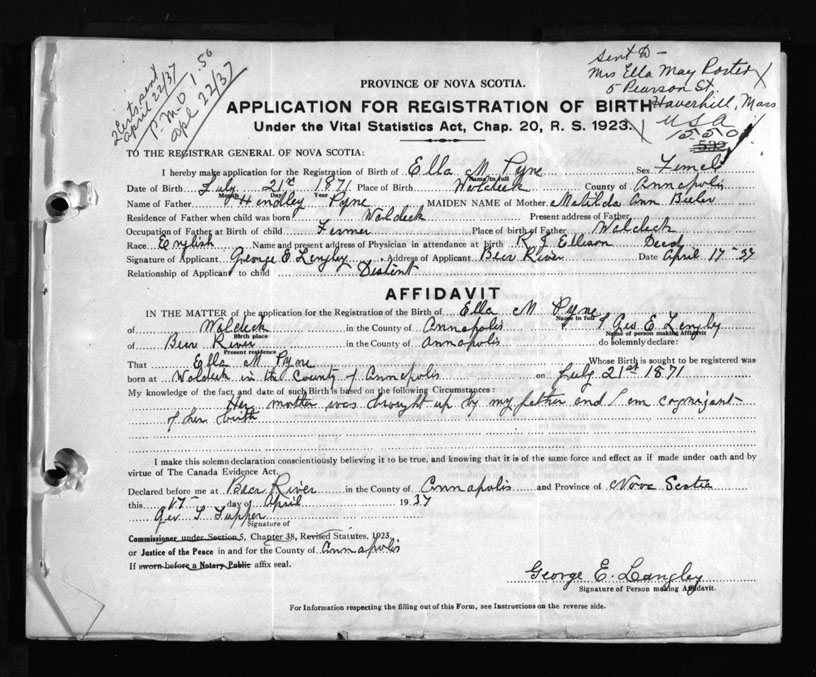 2 Certs. sent
april 22/37
P.M.O 1.50
apl 22/37
sent to -
Mrs Ella May Porter
5 Pearson St.
Haverhill, Mass
USA
1550
532
PROVINCE OF NOVA SCOTIA.
APPLICATION FOR REGISTRATION OF BIRTH
Under the Vital Statistics Act, Chap. 20, R. S. 1923.
TO THE REGISTRAR GENERAL OF NOVA SCOTIA:
I hereby make application for the Registration of Birth of Ella M Pyne Sex Femel
Name in full
Date of Birth July 21st 1871 Place of Birth Woldeck County of Annapolis
Month Day Year
Name of Father Hendley Pyne MAIDEN NAME of Mother Matilda Ann Beeler
Residence of Father when child was born Woldeck Present address of Father
Occupation of Father at Birth of child Fermer Place of birth of Father Woldeck
Race English Name and present address of Physician in attendance at birth R. J. Ellison Decd
Signature of Applicant George E Langley Address of Applicant Bear River Date April 17-37
Relationship of Applicant to child Distent
AFFIDAVIT
IN THE MATTER of the application for the Registration of the Birth of Ella M Pyne
Name in full
of Woldeck in the County of Annapolis I Geo. E. Lengley
Birth place Name of person making Affidavit
of Bear River in the County of Annapolis do solemnly declare:
Present residence
That Ella M Pyne Whose Birth is sought to be registered was
born at Woldeck in the County of Annapolis on July 21st 1871
My knowledge of the fact and date of such Birth is based on the following Circumstances:
Her mother was brought up by my father and I em cognizant
of her birth
I make this solemn declaration conscientiously believing it to be true, and knowing that it is of the same force and effect as if made under oath and by
virtue of The Canada Evidence Act.
Declared before me at Bear River in the County of Annapolis and Province of Nova Scotia
this 17 day of April 1937
Geo. L. Tupper
Signature of
Commissioner under Section 5, Chapter 38, Revised Statutes, 1923,
or Justice of the Peace in and for the County of Annapolis
If sworn before a Notary Public affix seal.
George E. Langley
Signature of Person making Affidavit.
For Information respecting the filling out of this Form, see Instructions on the reverse side.